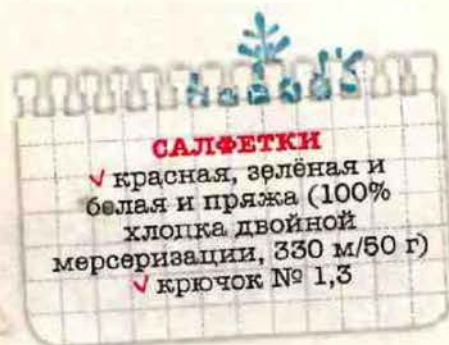 САЛФЕТКИ
√ красная, зелёная и
белая и пряжа (100%
хлопка двойной
мерсеризации, 330 м/50 г)
√ крючок № 1,3